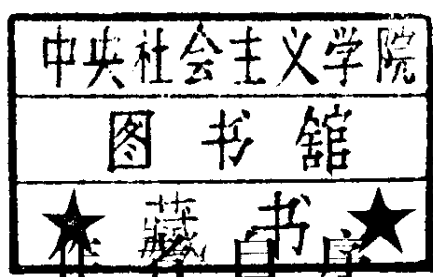 中央社会主义学院
图书舘
★藏书★
作者自序